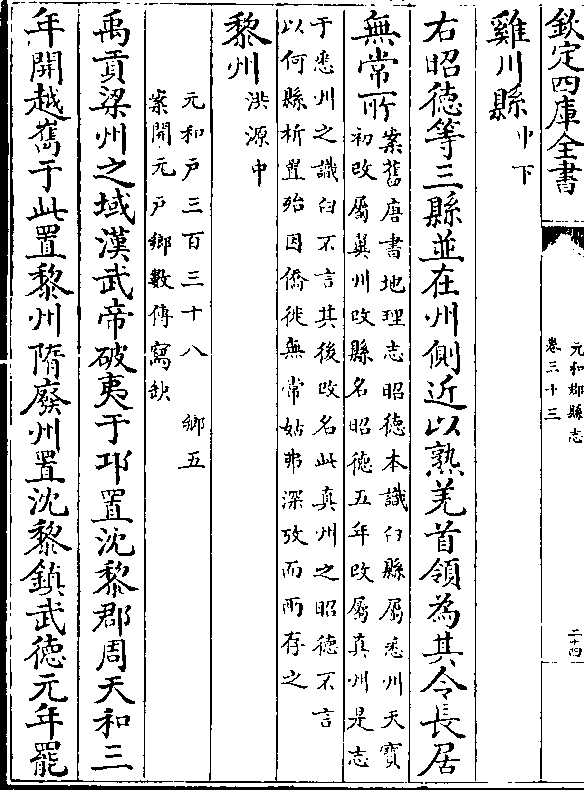 欽定四庫全書
元和郡縣志
卷三十三
二十四
雞川縣中下
右昭徳等三縣並在州側近以熟羌首領為其令長居
無常所案舊唐書地理志昭徳本識臼縣屬悉州天寶
初改屬真州改縣名昭徳五年改屬真州是志
于悉州之識臼不言其後改名此真州之昭徳不言
以何縣析置殆因僑徙無常姑弗深攷而兩存之
黎州洪源中
元和户三百三十八　鄉五
案開元户鄉數傳寫缺
禹貢梁州之域漢武帝破夷于邛置沈黎郡周天和三
年開越嶲于此置黎州隋廢州置沈黎鎮武徳元年罷